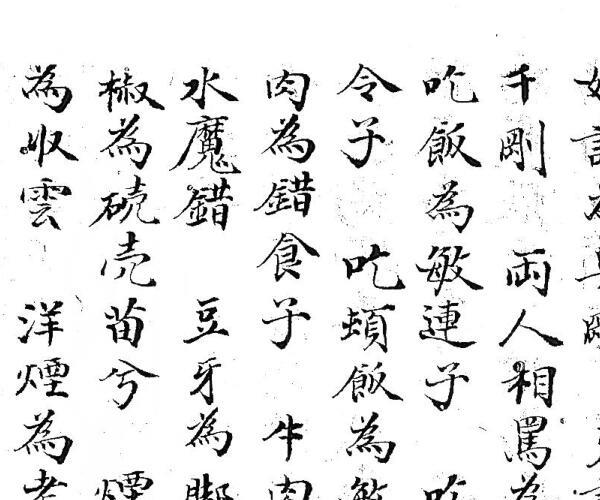 千剛 両人相罵為
吃飯為敏連子 吃
令子 吃頓飯為敏
肉為錯食子 牛肉
水魔錯 豆牙為脚
椒為壳苗兮 煙
為收雲 洋煙為老